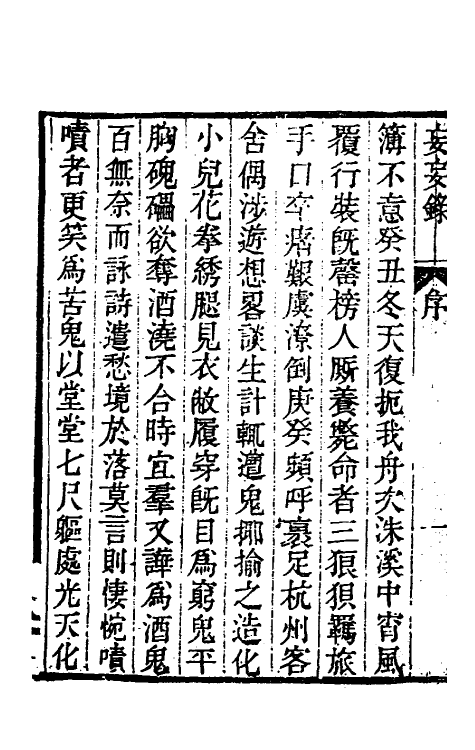 妄妄錄
序
簿不意癸丑冬天復扼我舟次洙溪中宵風
覆行裝旣罄榜人厮養斃命者三狼狽羈旅
手口卒瘏艱虞潦倒庚癸頻呼裹足杭州客
舍偶涉遊想畧談生計輒遭鬼揶揄之造化
小兒花拳綉腿見衣敝履穿旣目爲窮鬼平
胸磈礧欲奪酒澆不合時宜羣又譁爲酒鬼
百無奈而詠詩遣愁境於落莫言則悽惋嘖
嘖者更笑爲苦鬼以堂堂七尺軀處光天化